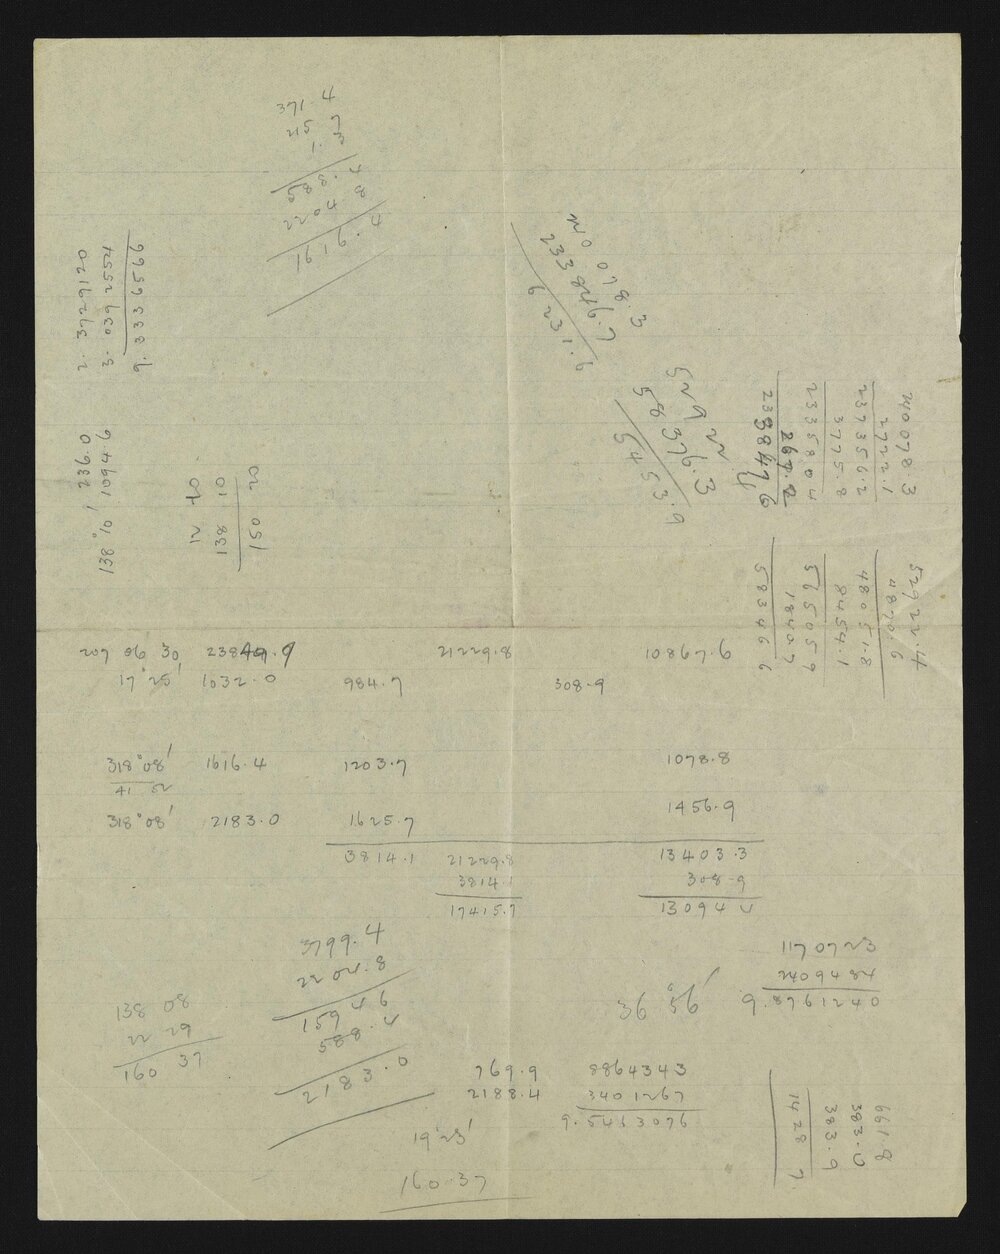 371.4
215.7
1.3
588.4
2204.8
1616.4
2.3729120
3.0392554
9.3336566
236.0
138°10' 1094.6
12 10
138 10
150 20
3.8610
7.9428332
9.1329
5292
58376.3
5453.9
240078.3
2722.1
237356.2
3775.8
233580.4
267.2
233847.6
52922.4
4870.6
48051.8
8454.1
56505.9
1840.7
58346.6
207 06 30 23849.9 21229.8 10867.6
17°25' 1032.0 984.7 308.9
318°08' 1616.4 1203.7 1078.8
41 52
318°08' 2183.0 1625.7 1456.9
3814.1 21229.8 13403.3
3814.1 308.9
17415.7 13094.4
3799.4
2204.8
1594.6
588.4
2183.0
138 08
22 29
160 37
36°56'
1170723
2409484
9.8761240
769.9 8864343
2188.4 3401267
9.5463076
19°23'
160.37
661.8
383.0
383.9
1428.7